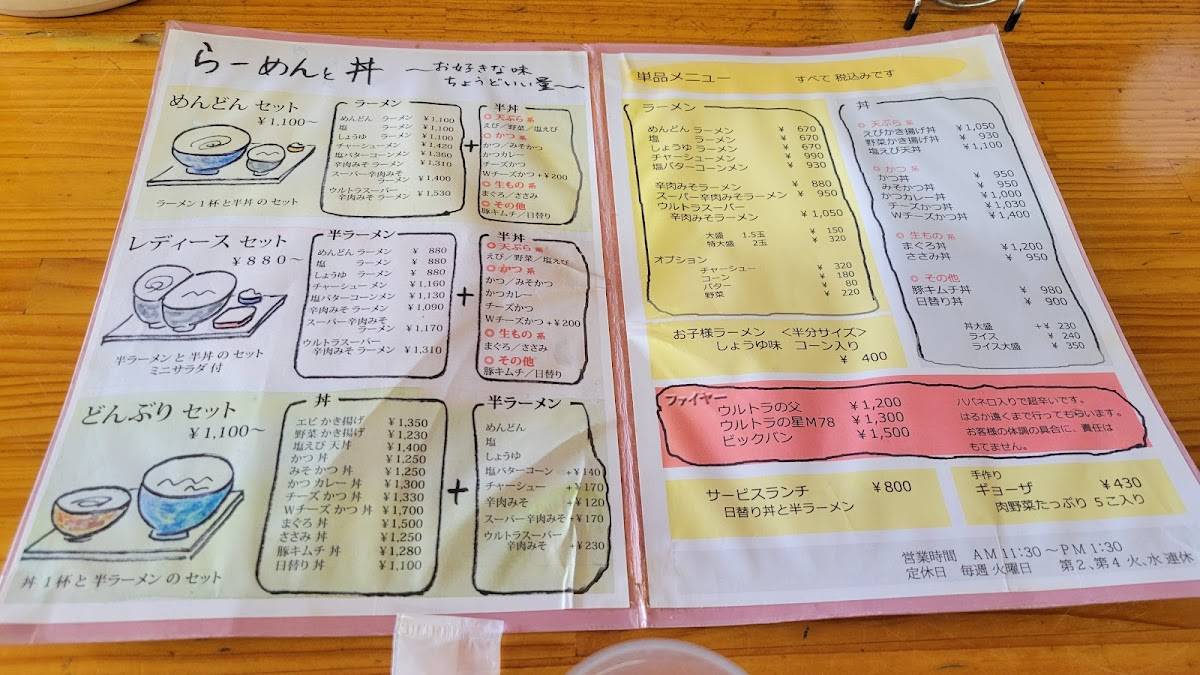 らーめんと 丼 ～お好きな味 ちょうどいい量～
めんどん セット
¥1,100～
ラーメン1杯と半丼 のセット
ラーメン
めんどん ラーメン ¥1,100
塩 ラーメン ¥1,100
しょうゆ ラーメン ¥1,100
チャーシューメン ¥1,420
塩バターコーンメン ¥1,360
辛肉みそ ラーメン ¥1,310
スーパー辛肉みそ
ラーメン ¥1,400
ウルトラスーパー
辛肉みそ ラーメン ¥1,530
+
半丼
◎天ぷら 系
えび／野菜／塩えび
◎かつ 系
かつ／みそかつ
かつカレー
チーズかつ
Wチーズかつ +¥200
◎生もの 系
まぐろ／ささみ
◎その他
豚キムチ／日替り
レディース セット
¥880～
半ラーメンと 半丼 のセット
ミニサラダ 付
半ラーメン
めんどん ラーメン ¥ 880
塩 ラーメン ¥ 880
しょうゆ ラーメン ¥ 880
チャーシューメン ¥1,160
塩バターコーンメン ¥1,130
辛肉みそ ラーメン ¥1,090
スーパー辛肉みそ
ラーメン ¥1,170
ウルトラスーパー
辛肉みそ ラーメン ¥1,310
+
半丼
◎天ぷら 系
えび／野菜／塩えび
◎かつ 系
かつ／みそかつ
かつカレー
チーズかつ
Wチーズかつ +¥200
◎生もの 系
まぐろ／ささみ
◎その他
豚キムチ／日替り
どんぶり セット
¥1,100～
丼 1杯 と 半ラーメン のセット
丼
エビ かき揚げ ¥1,350
野菜 かき揚げ ¥1,230
塩えび 天丼 ¥1,400
かつ 丼 ¥1,250
みそ かつ 丼 ¥1,250
かつ カレー 丼 ¥1,300
チーズ かつ 丼 ¥1,330
Wチーズ かつ 丼 ¥1,700
まぐろ 丼 ¥1,500
ささみ 丼 ¥1,250
豚キムチ 丼 ¥1,280
日替り 丼 ¥1,100
+
半ラーメン
めんどん
塩
しょうゆ
塩バターコーン +¥140
チャーシュー +¥170
辛肉みそ +¥120
スーパー辛肉みそ +¥170
ウルトラスーパー
辛肉みそ +¥230
単品メニュー すべて 税込みです
ラーメン
めんどん ラーメン ¥ 670
塩 ラーメン ¥ 670
しょうゆ ラーメン ¥ 670
チャーシューメン ¥ 990
塩バターコーンメン ¥ 930
辛肉みそラーメン ¥ 880
スーパー辛肉みそラーメン ¥ 950
ウルトラスーパー
辛肉みそラーメン ¥ 1,050
大盛 1.5玉 ¥ 150
特大盛 2玉 ¥ 320
オプション
チャーシュー ¥ 320
コーン ¥ 180
バター ¥ 80
野菜 ¥ 220
丼
◎ 天ぷら 系
えびかき揚げ丼 ¥1,050
野菜かき揚げ丼 ¥ 930
塩えび天丼 ¥1,100
◎ かつ 系
かつ丼 ¥ 950
みそかつ丼 ¥ 950
かつカレー丼 ¥1,000
チーズかつ丼 ¥1,030
Wチーズかつ丼 ¥1,400
◎ 生もの 系
まぐろ丼 ¥1,200
ささみ丼 ¥ 950
◎ その他
豚キムチ丼 ¥ 980
日替り丼 ¥ 900
丼大盛 +¥ 230
ライス ¥ 240
ライス大盛 ¥ 350
お子様ラーメン ＜半分サイズ＞
しょうゆ味 コーン入り
¥ 400
ファイヤー
ウルトラの父 ¥1,200
ウルトラの星M78 ¥1,300
ビックバン ¥1,500
ハバネロ入りで超辛いです。
はるか遠くまで行ってもらいます。
お客様の体調の具合に、責任は
もてません。
サービスランチ ¥800
日替り丼と半ラーメン
手作り
ギョーザ ¥430
肉野菜たっぷり 5こ入り
営業時間 AM11:30～PM1:30
定休日 毎週 火曜日 第2、第4 火、水連休